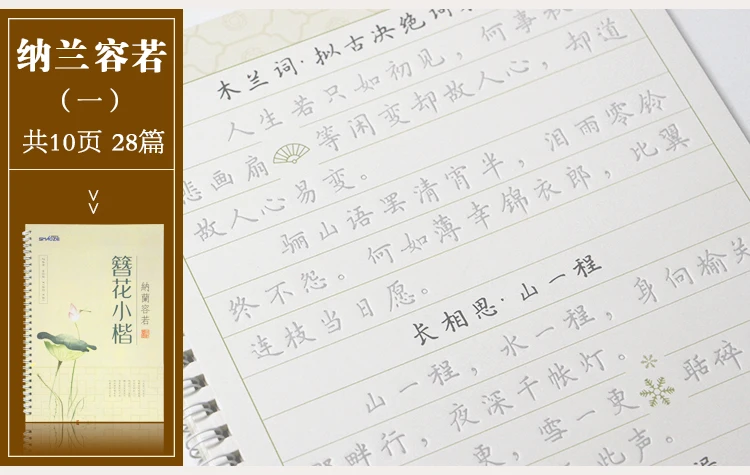 纳兰容若
（一）
共10页 28篇
簪花小楷
納蘭容若
木兰词·拟古决绝词
人生若只如初见，何事
等闲变却故人心，却道
悲画扇
故人心易变。
骊山语罢清宵半，泪雨零铃
终不怨。何如薄幸锦衣郎，比翼
连枝当日愿。
长相思·山一程
山一程，水一程，身向榆关
那畔行，夜深千帐灯。
更，雪一更，聒碎
此声。